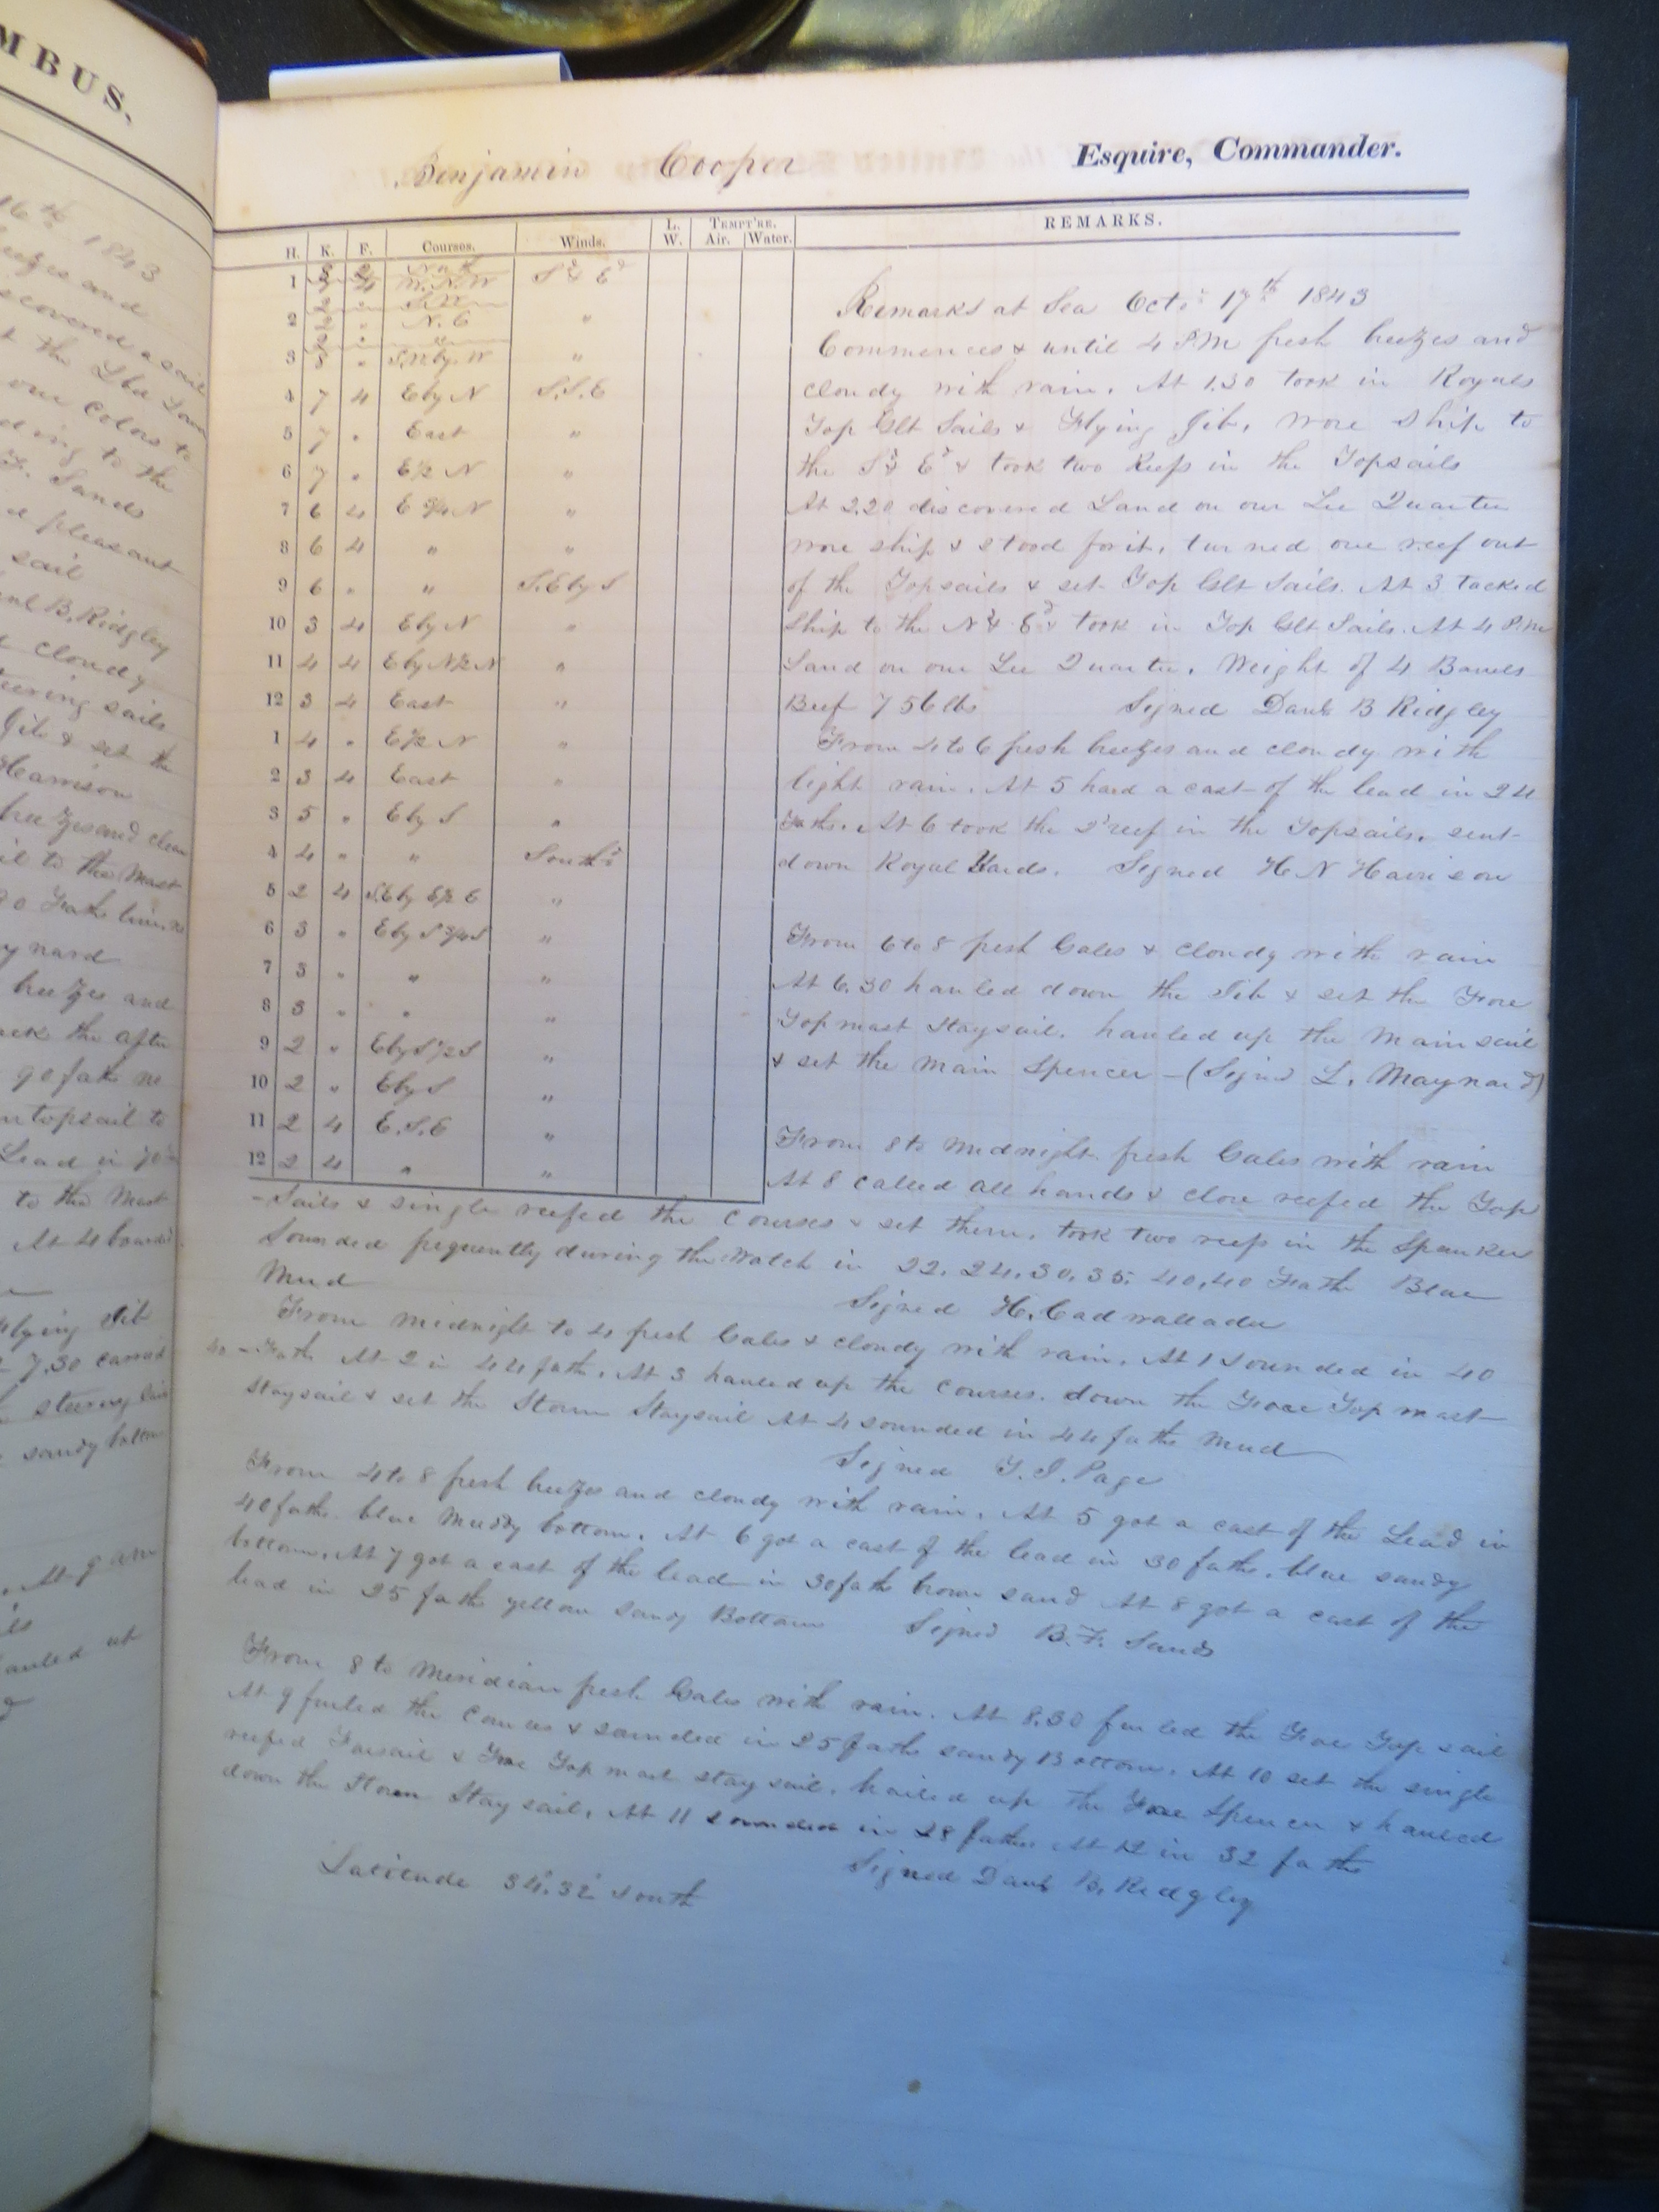 MBUS.
16th 1843
Benjamin Cooper Esquire, Commander.
H. K. F. Courses. Winds. L. W. TEMPT'RE. Air. Water. REMARKS.
1 W.N.W Sd & Ed
2 N.E "
3 " "
4 7 4 E by N S.S.E
5 7 " East "
6 7 " E½ N "
7 6 4 E ¾ N "
8 6 4 " "
9 6 " " S.E by S
10 3 4 E by N "
11 4 4 E by N½N "
12 3 4 East "
1 4 " E½ N "
2 3 4 East "
3 5 " E by S "
4 4 " " Southd
5 2 4 S.E by E½ E "
6 3 " E by S ¾ S "
7 3 " " "
8 3 " " "
9 2 " E by S ½ S "
10 2 " E by S "
11 2 4 E.S.E "
12 2 4 " "
Remarks at Sea Octr 17th 1843
Commences & until 4 P.M fresh breezes and
cloudy with rain. At 1.30 took in Royals
Top Glt Sails & Flying Jib, wore ship to
the Sd & Ed & took two Reefs in the Topsails
At 2.20 discovered Land on our Lee Quarter
wore ship & stood for it, turned one reef out
of the Topsails & set Top Glt Sails. At 3 tacked
Ship to the Nd & Ed & took in Top Glt Sails. At 4 P.M
Land on our Lee Quarter. Weight of 4 Barrels
Beef 756 lbs Signed Danl B Ridgley
From 4 to 6 fresh breezes and cloudy with
light rain. At 5 had a cast of the lead in 24
Faths. At 6 took the 2d reef in the Topsails, sent
down Royal Yards. Signed H N Harrison
From 6 to 8 fresh Gales & cloudy with rain
At 6.30 hauled down the Jib & set the Fore
Topmast Staysail, hauled up the Mainsail
& set the Main Spencer - (Signd L. Maynard)
From 8 to Midnight fresh Gales with rain
At 8 called all hands & close reefed the Top
-Sails & single reefed the Courses & set them, took two reefs in the Spanker
Sounded frequently during the Watch in 22. 24. 30. 35. 40. 40 Faths Blue
Mud Signed H. Cadwallader
From midnight to 4 fresh Gales & cloudy with rain. At 1 sounded in 40
40 - Faths At 2 in 44 faths. At 3 hauled up the Courses, down the Fore Top mast
Staysail & set the Storm Staysail At 4 sounded in 44 faths Mud
Signed T. J. Page
From 4 to 8 fresh breezes and cloudy with rain. At 5 got a cast of the Lead in
40 faths. blue Muddy bottom. At 6 got a cast of the lead in 30 faths. blue sandy
bottom. At 7 got a cast of the lead in 30 faths brown sand At 8 got a cast of the
lead in 25 faths yellow sandy Bottom Signed B. F. Sands
From 8 to Meridian fresh Gales with rain. At 8.30 furled the Fore Top sail
At 9 furled the Courses & sounded in 25 faths sandy Bottom. At 10 set the single
reefed Foresail & Fore Top mast stay sail, hauled up the Fore Spencer & hauled
down the Storm Stay sail. At 11 sounded in 28 faths At 12 in 32 faths
Signed Danl B. Ridgley
Latitude 34°.32' South